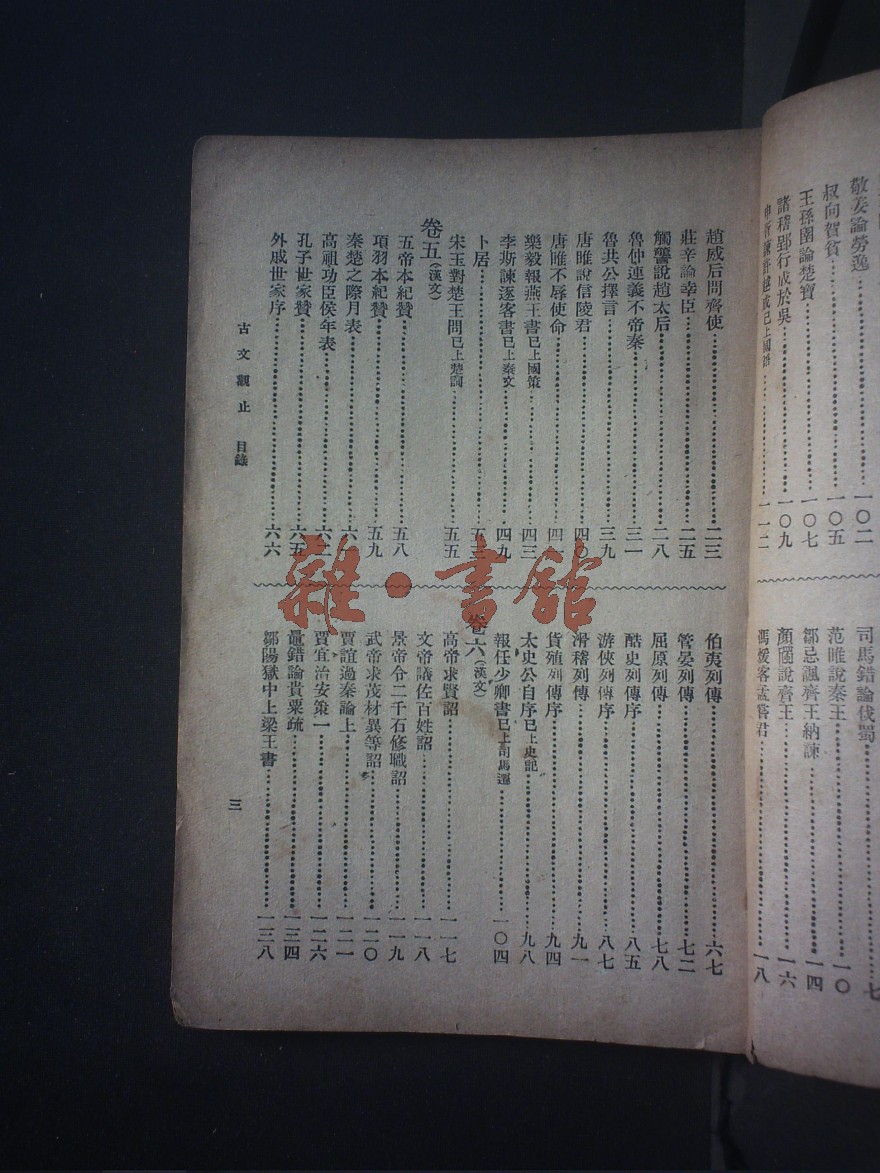 敬姜論勞逸……一〇二
叔向賀貧……一〇五
王孫圉論楚寶……一〇七
諸稽郢行成於吳……一〇九
申胥諫許越成已上國語……一一二
司馬錯論伐蜀……七
范雎說秦王……一〇
鄒忌諷齊王納諫……一四
顏斶說齊王……一六
馮煖客孟嘗君……一八
趙威后問齊使……二三
莊辛論幸臣……二五
觸讋說趙太后……二八
魯仲連義不帝秦……三一
魯共公擇言……三九
唐雎說信陵君……四〇
唐雎不辱使命……四一
樂毅報燕王書已上國策……四三
李斯諫逐客書已上秦文……四九
卜居……五三
宋玉對楚王問已上楚詞……五五
卷五(漢文)
五帝本紀贊……五八
項羽本紀贊……五九
秦楚之際月表……六一
高祖功臣侯年表……六二
孔子世家贊……六五
外戚世家序……六六
伯夷列傳……六七
管晏列傳……七二
屈原列傳……七八
酷吏列傳序……八五
游俠列傳序……八七
滑稽列傳……九一
貨殖列傳序……九四
太史公自序已上史記……九八
報任少卿書已上司馬遷……一〇四
卷六(漢文)
高帝求賢詔……一一七
文帝議佐百姓詔……一一八
景帝令二千石修職詔……一一九
武帝求茂材異等詔……一二〇
賈誼過秦論上……一二一
賈宜治安策一……一二六
鼂錯論貴粟疏……一三四
鄒陽獄中上梁王書……一三八
古文觀止 目錄
三
雜·書館